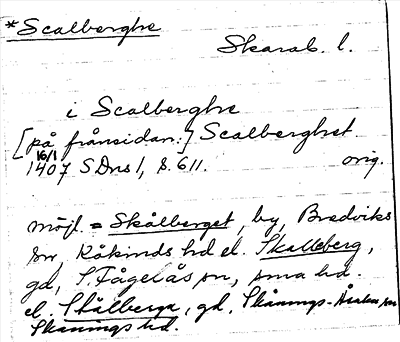 *Scalberghe
Skarab. l.
i Scalberghe
[på frånsidan:] Scalberghet
16/1 1407 SDns 1, s. 611. orig.
möjl. = Skålberget, by, Bredviks
sn, Kåkinds hd el. Skalleberg,
gd, S. Fågelås sn, sma hd.
el. Skålberga, gd, Skånings-Åsaka sn
Skånings hd.